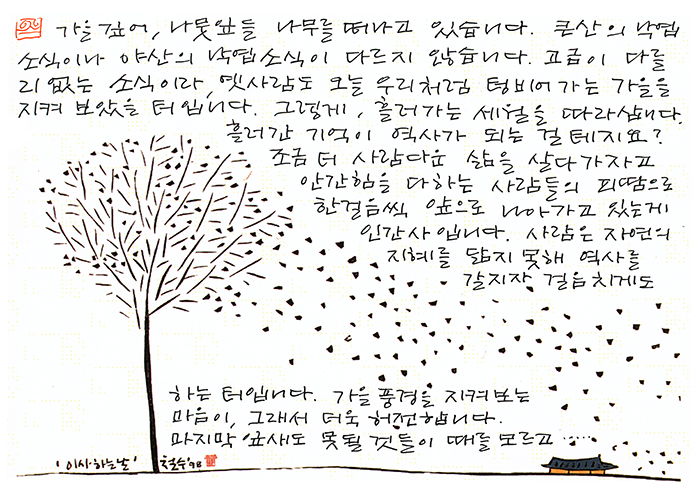 가을 깊어, 나뭇잎들 나무를 떠나고 있습니다. 큰산의 낙엽
소식이나 야산의 낙엽소식이 다르지 않습니다. 고금이 다를
리 없는 소식이라, 옛사람도 오늘 우리처럼 텅비어가는 가을을
지켜 보았을 터입니다. 그렇게, 흘러가는 세월을 따라삽니다.
흘러간 기억이 역사가 되는 걸테지요?
조금 더 사람다운 삶을 살다가자고
안간힘을 다하는 사람들의 피땀으로
한걸음씩 앞으로 나아가고 있는게
인간사입니다. 사람은 자연의
지혜를 닮지 못해 역사를
갈지자 걸음치게도
하는 터입니다. 가을 풍경을 지켜보는
마음이, 그래서 더욱 허전합니다.
마지막 잎새도 못될 것들이 때를 모르고 ……
'이사하는날' 철수 '98